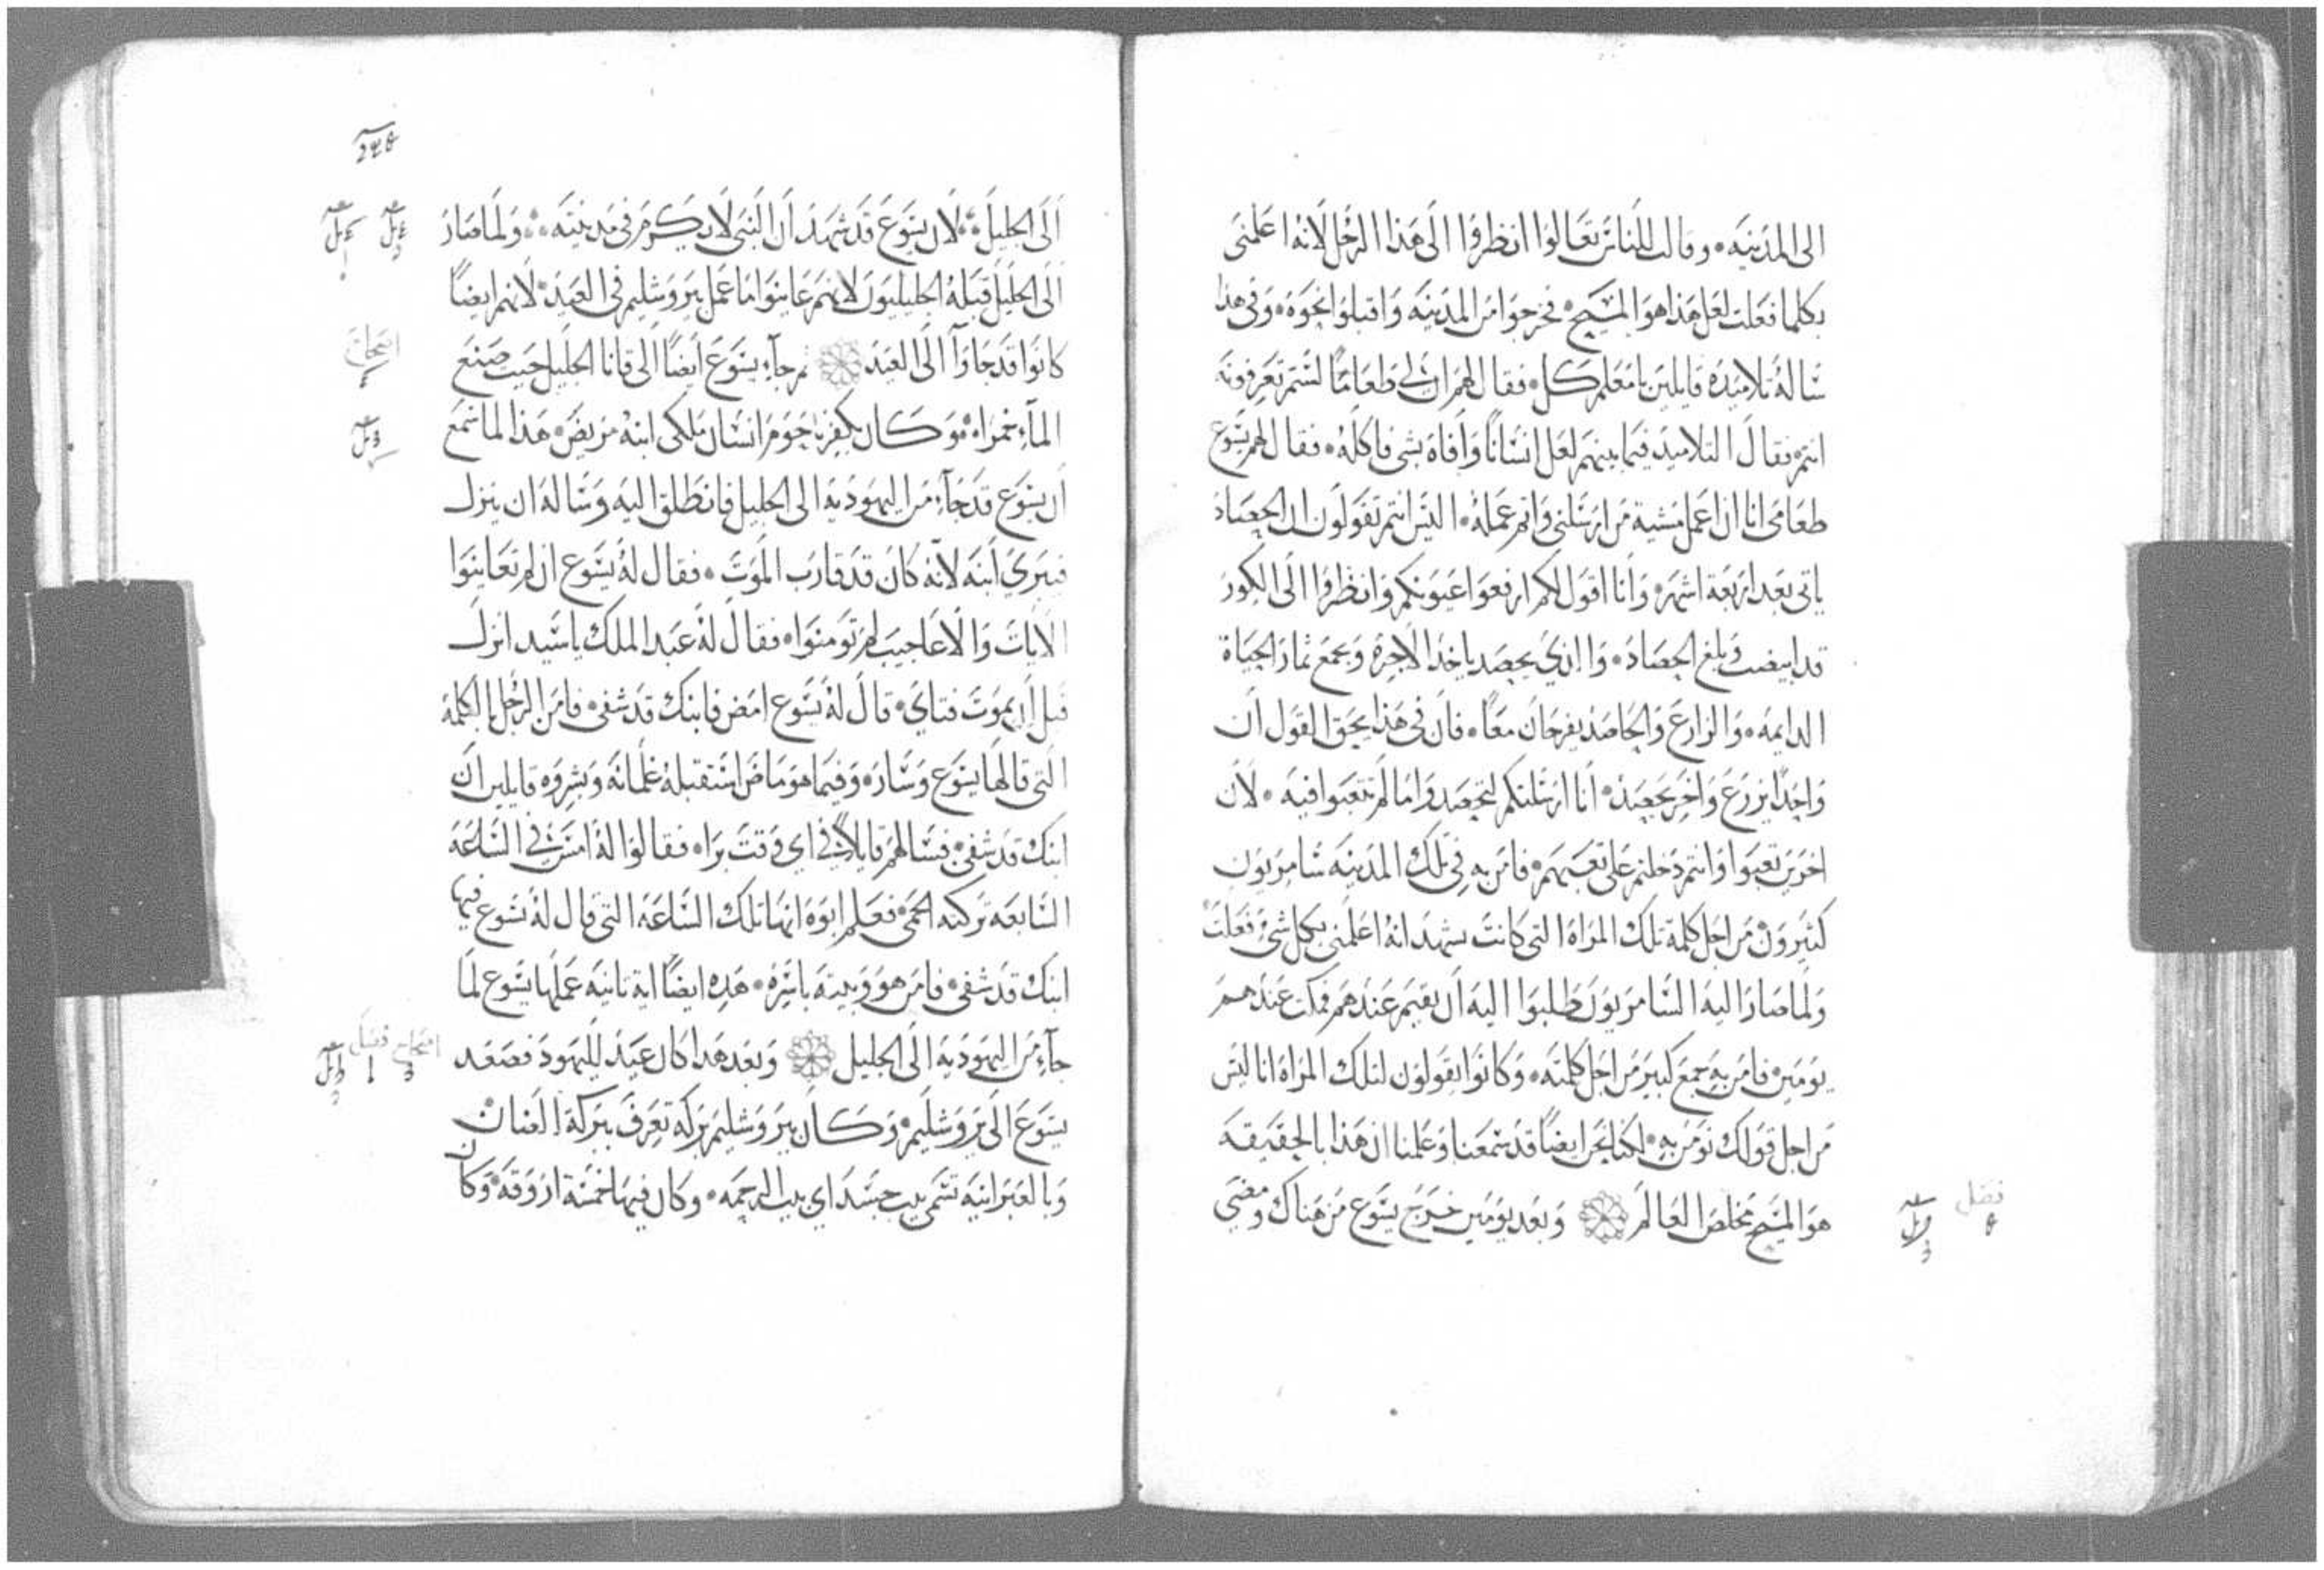 الى المدينه • وقالت للناس تعالوا انظروا الى هذا الرجل لانه اعلمنى
بكلما فعلت لعل هذا هو المسيح • فخرجوا من المدينه واقبلوا نحوه • وفى هذا
ساله تلاميذه قايلين يا معلم كل • فقال لهم ان لى طعاما لستم تعرفونه
انتم • فقال التلاميذ فيما بينهم لعل انسانا وافاه بشى فاكله • فقال لهم يسوع
طعامى انا ان اعمل مشية من ارسلنى واتم عمله • اليس انتم تقولون ان الحصاد
ياتى بعد اربعة اشهر • وانا اقول لكم ارفعوا عيونكم وانظروا الى الكور
قد ابيضت وبلغ الحصاد • والذي يحصد ياخذ الاجرة ويجمع ثمار الحياة
الدايمه • والزارع والحاصد يفرحان معا • فان فى هذا يحق القول ان
واحدا يزرع واخر يحصد • انا ارسلتكم لتحصدوا ما لم تتعبوا فيه • لان
اخرين تعبوا وانتم دخلتم على تعبهم • فامن به في تلك المدينه سامريون
كثيرون من اجل كلمة تلك المراه التى كانت تشهد انه اعلمنى بكل شى فعلت •
ولما صار اليه السامريون طلبوا اليه ان يقيم عندهم فمكث عندهم
يومين • فامن به جمع كبير من اجل كلمته • وكانوا يقولون لتلك المراه انا ليس
من اجل قولك نومن به • لكنا نحن ايضا قد سمعنا وعلمنا ان هذا بالحقيقه
هو المسيح مخلص العالم وبعد يومين خرج يسوع من هناك ومضى
فصل
الى الجليل • لان يسوع قد شهد ان النبى لا يكرم فى مدينته • ولما صار
الى الجليل قبله الجليليون لانهم عاينوا ما عمل بيروشليم فى العيد • لانهم ايضا
كانوا قد جاوا الى العيد ثم جآء يسوع ايضا الى قانا الجليل حيث صنع
المآء خمرا • وكان بكفرناحوم انسان ملكى ابنه مريض • هذا لما سمع
ان يسوع قد جآء من اليهوديه الى الجليل فانطلق اليه وساله ان ينزل
فيبري ابنه لانه كان قد قارب الموت • فقال له يسوع ان لم تعاينوا
الايات والاعاجيب لم تومنوا • فقال له عبد الملك يا سيد انزل
قبل ان يموت فتاي • قال له يسوع امض فابنك قد شفى • فامن الرجل بالكلمة
التى قالها يسوع وسار • وفيما هو ماض استقبله غلمانه وبشروه قايلين ان
ابنك قد شفى • فسالهم قايلا في اي وقت برا • فقالوا له امس في الساعه
السابعه تركته الحمى • فعلم ابوه انها تلك الساعه التى قال له يسوع فيها
ابنك قد شفى • فامن هو وبيته باسره • هذه ايضا اية ثانيه عملها يسوع لما
جآء من اليهوديه الى الجليل وبعد هذا كان عيد لليهود فصعد
يسوع الى يروشليم • وكان بيروشليم بركه تعرف ببركة الضان •
وبالعبرانيه تسمى بيت حسدا اي بيت الرحمه • وكان فيها خمسة اروقه • وكان
فصل